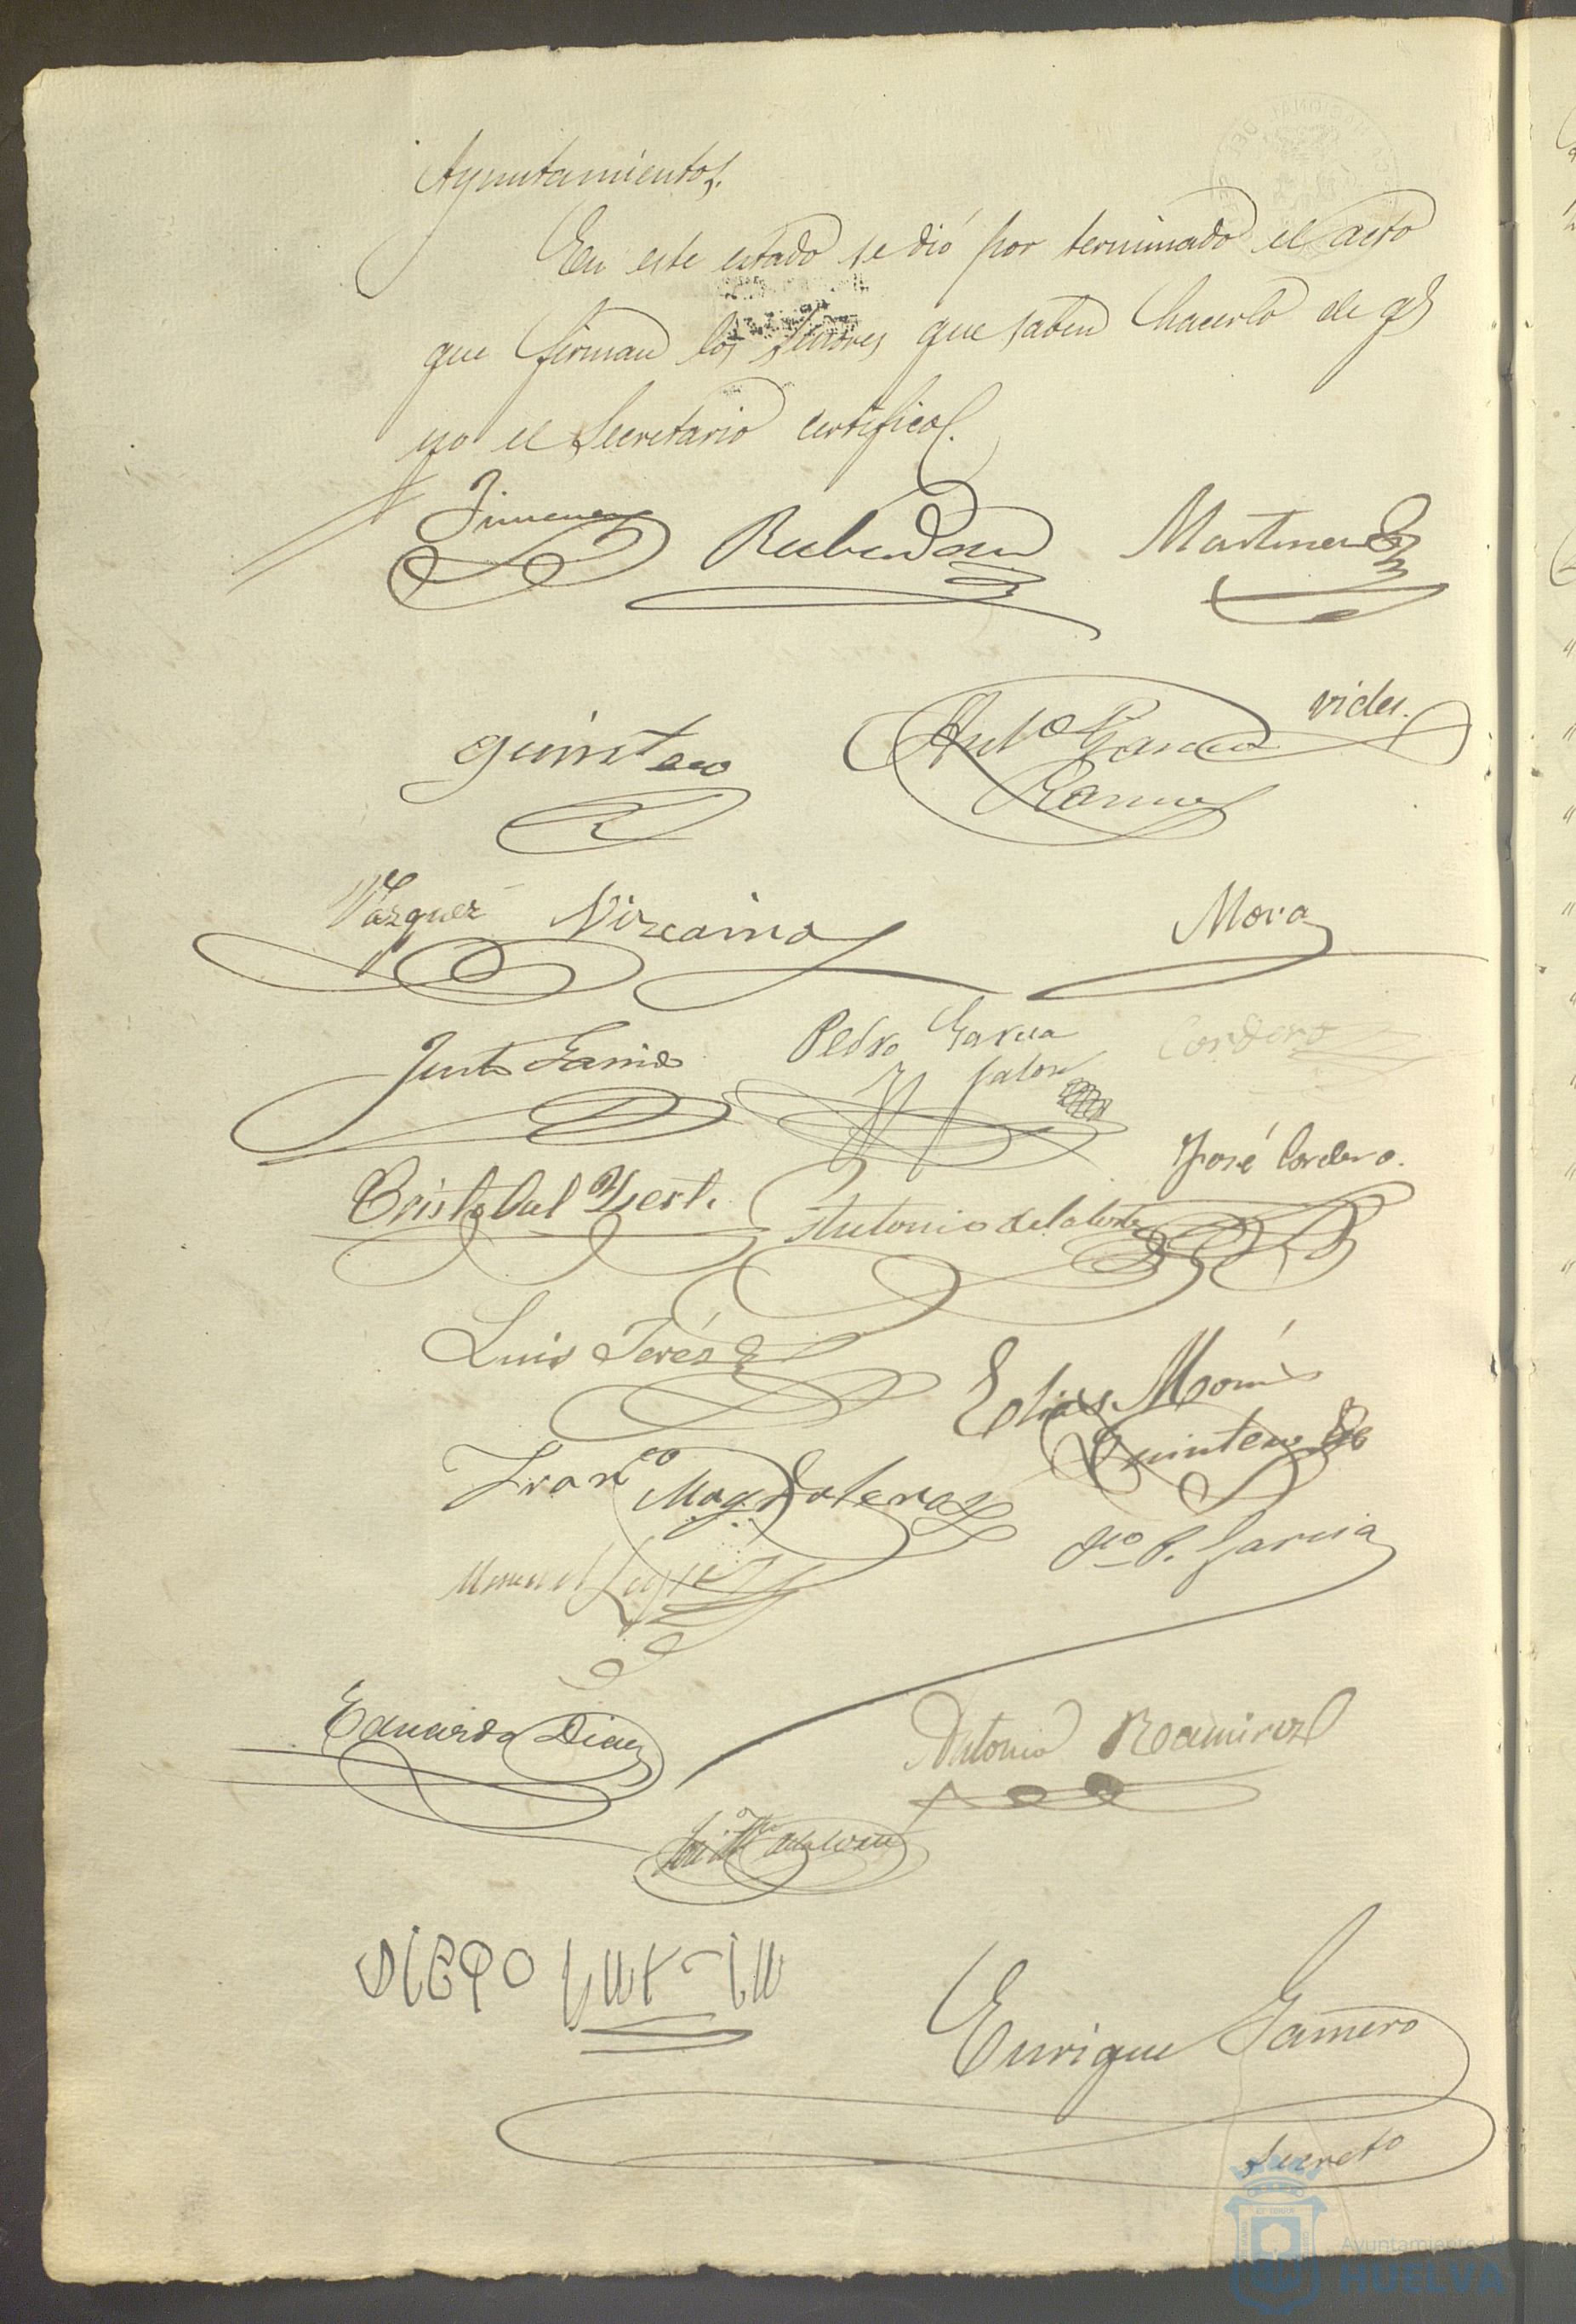 Ayuntamiento.
En este estado se dió por terminado el acto
que firman los señores que saben hacerlo de q.e
yo el Secretario certifico.
Jimenez Martinez
Vides.
Quintero Ant.o Garcia
Ramos
Vazquez Vizcaino Mora
Justo Garrido Pedro Garcia Cordero
Jalon
José Cordero.
Cristobal Antonio de la Corte
Luis Peréz
Elias
Quintero
Fran.co Magdalena
Manuel Lopez J.co P. Garcia
Eduardo Diaz Antonio Ramirez
de la Corte
DIEGO
Enrique Gamero
Secret.o
Ayuntamiento de
HUELVA